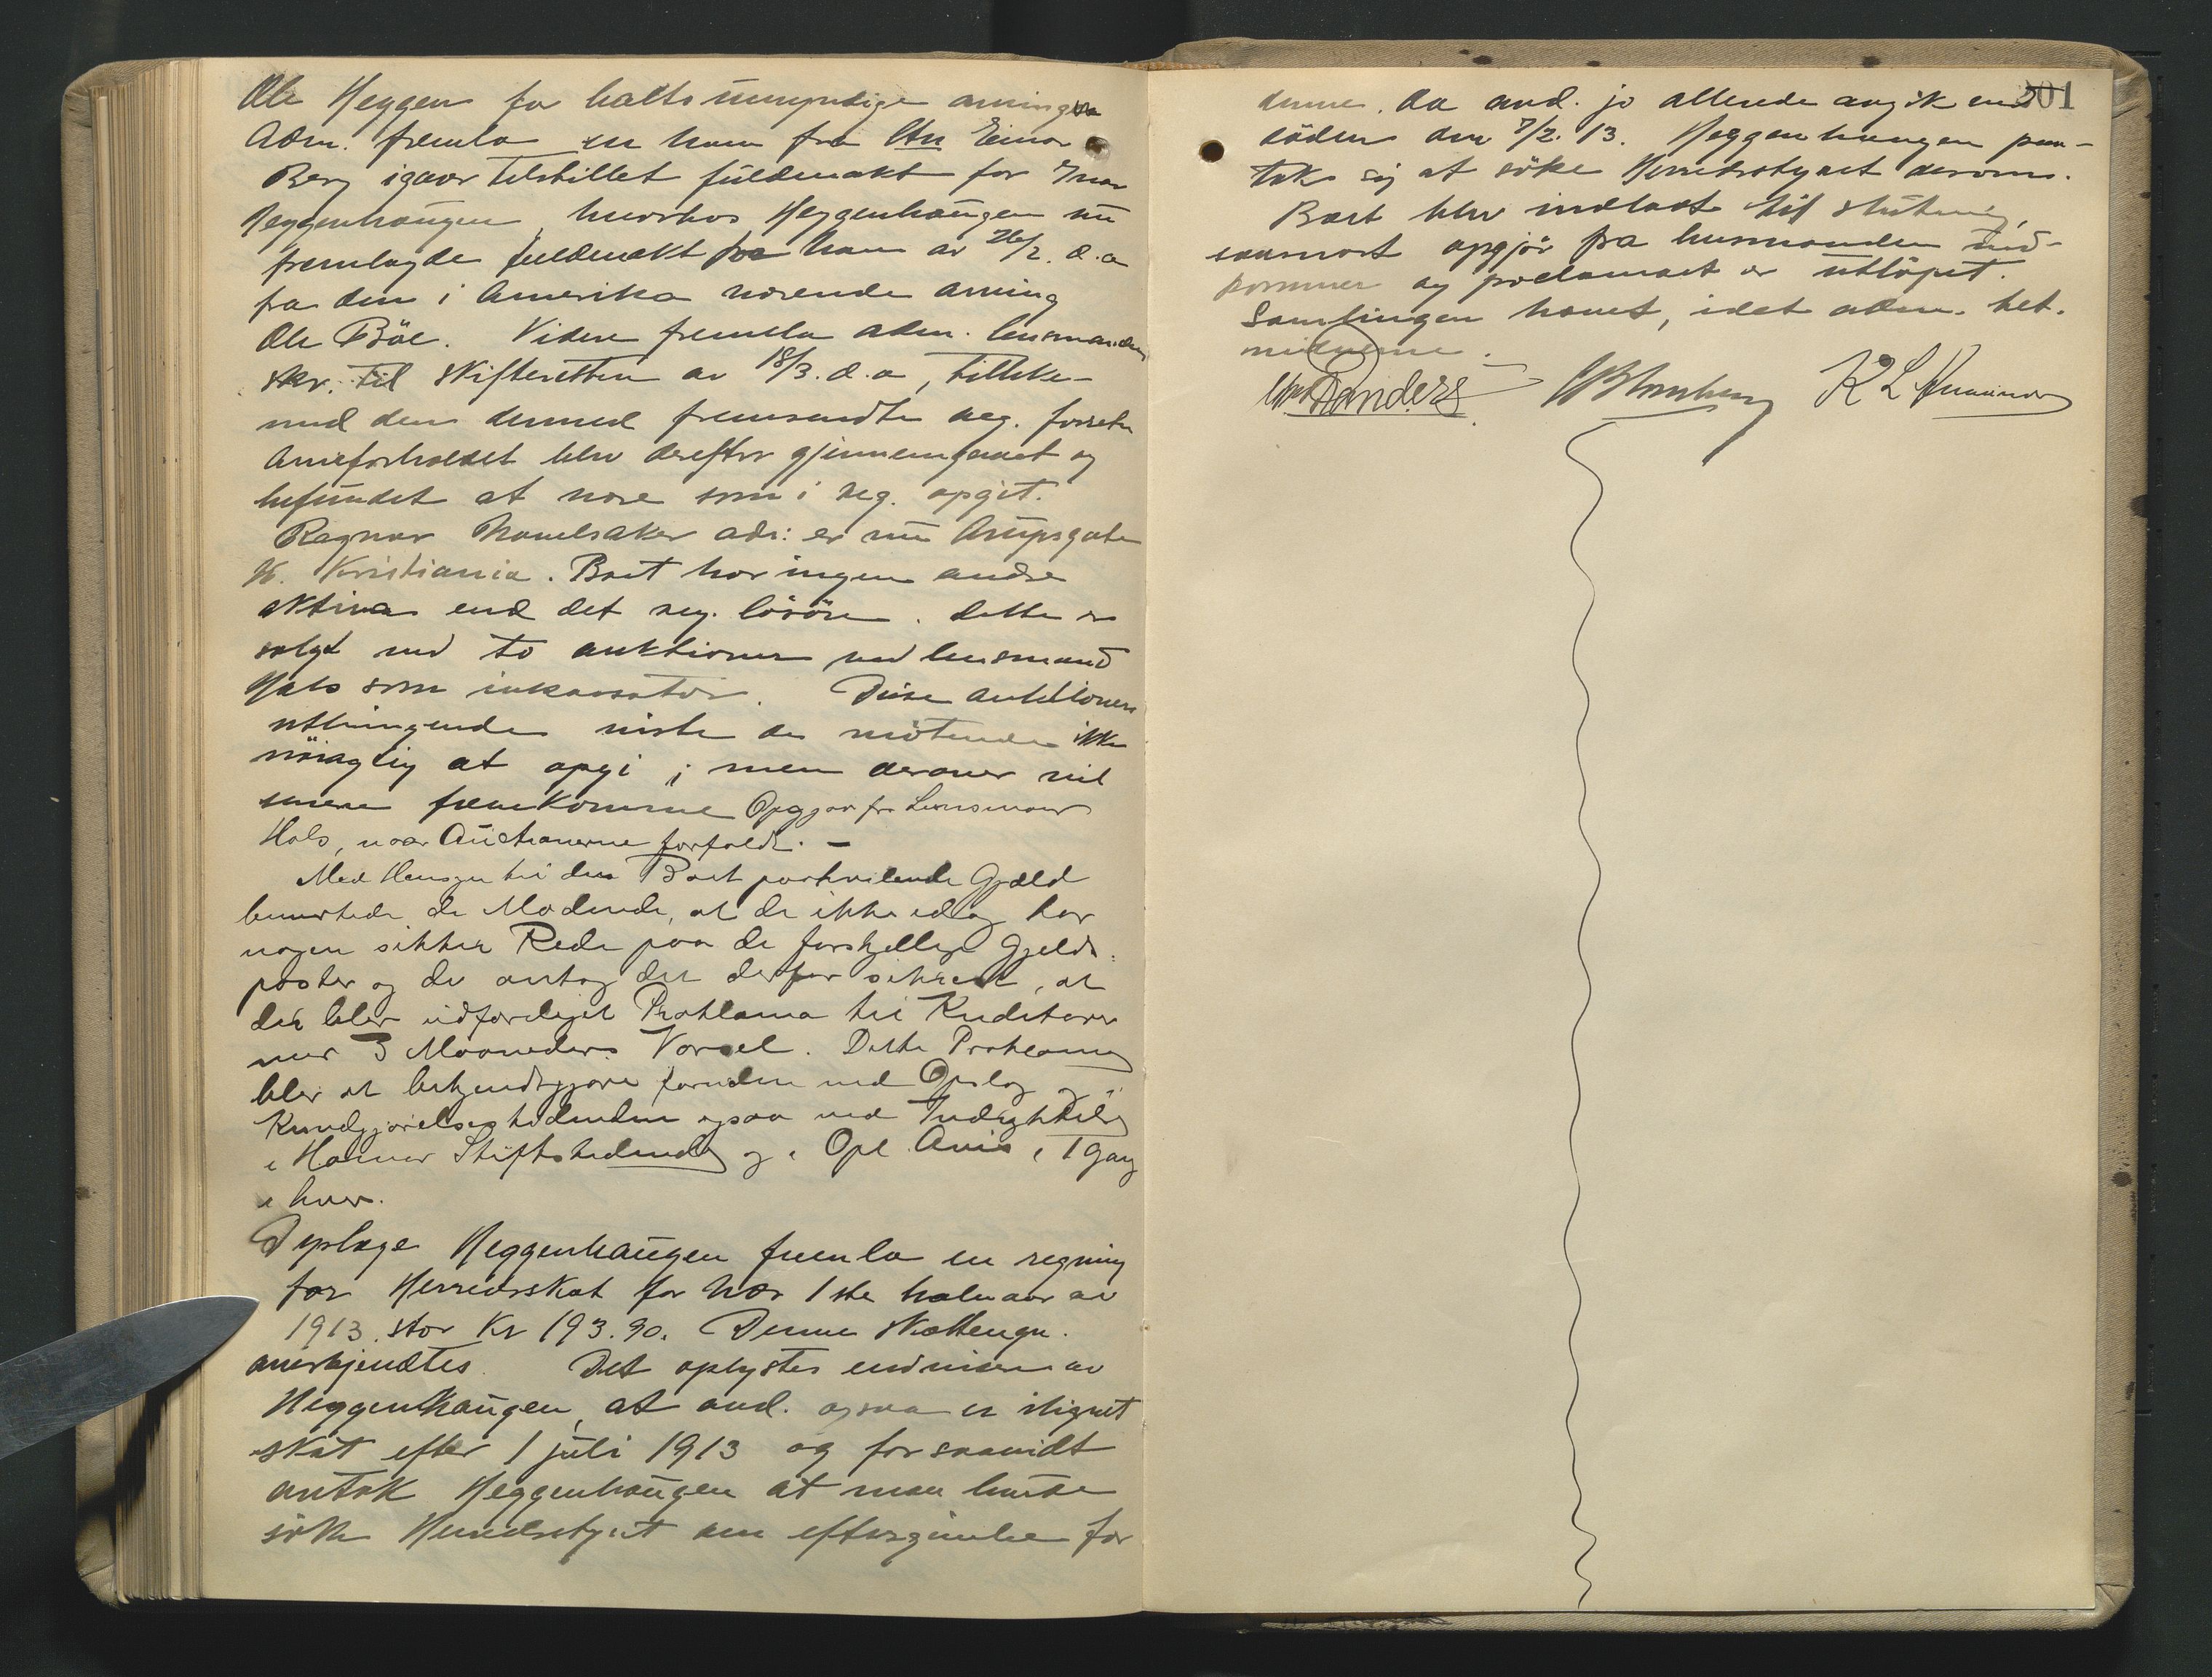 Ole Heggen for halvs umyndige arvinger
Adm. fremla en ham fra Einar
Berg igaar tilstillet fuldmakt for Ivar
Heggenhaugen, hvorhos Heggenhaugen nu
fremlagde fuldmakt fra ham av 26/2. d.a
fra den i Amerika værende arving
Ole Böe. Videre fremla adm. lensmandens
skr. til Skifteretten av 18/3. d.a, tillike-
med den dermed fremsendte reg. forretn
Arveforholdet blev derefter gjennemgaaet og
befundet at være som i reg. opgit.
Ragnar adr: er nu Arupsgate
Kristiania. Boet har ingen andre
aktiva end det reg. lösöre. Dette er
solgt ved to auktioner med lensmand
Hals som inkassator. Disse auktioners
utbringende viste de mötende ikke
nöiagtig at opgi; men derover vil
senere fremkomme Opgjør fra Lensmand
Hals, naar Auctionerne forfaldt. -
Med Hensyn til den Boet paahvilende Gjæld
bemerkede de Mødende, at de ikke idag har
nogen sikker Rede paa de forskjellige Gjelds-
poster og de antog det derfor sikrest, at
der blev udfærdiget Proklama til Kreditorer
med 3 Maaneders Varsel. Dette Proklama
blev at bekjendtgjøre foruden ved Opslag og i
Kundgjørelsestidenden ogsaa ved Indrykkelse
i Hamar Stiftstidende og i Opl. Avis, 1 gang
i hver.
Heggenhaugen fremla en regning
for Herredsskat for 1ste halvaar av
1913, stor Kr 193.90. Denne Skatteregn.
anerkjendtes. Det oplystes endvidere av
Heggenhaugen, at avd. ogsaa er ilignet
skat efter 1 juli 1913 og forsaavidt
antok Heggenhaugen at man burde
söke Herredsstyret om eftergivelse for
201
denne, da avd. jo allerede avgik ved
döden den 7/2. 13. Heggenhaugen paa-
tok sig at söke Herredsstyret derom.
Boet blev indlatt til slutning,
saasnart opgjör fra lensmanden ind-
kommer og proclamaet er utlöpet.
Samlingen hævet, idet adm. bet.
vidnerne.
Randers